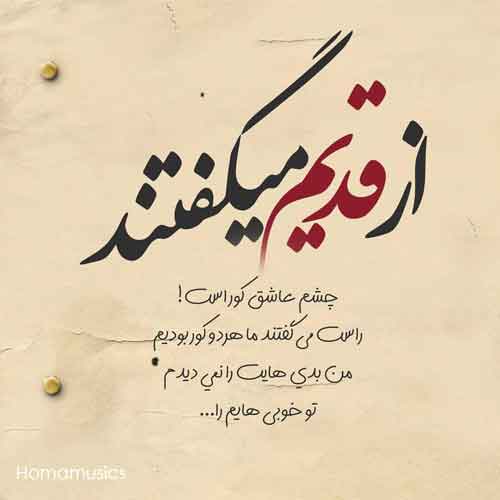 از قدیم میگفتند
چشم عاشق کور است !
راست می گفتند ما هردو کور بودیم
من بدي هایت را نمي دیدم
تو خوبی هایم را...
Homamusics